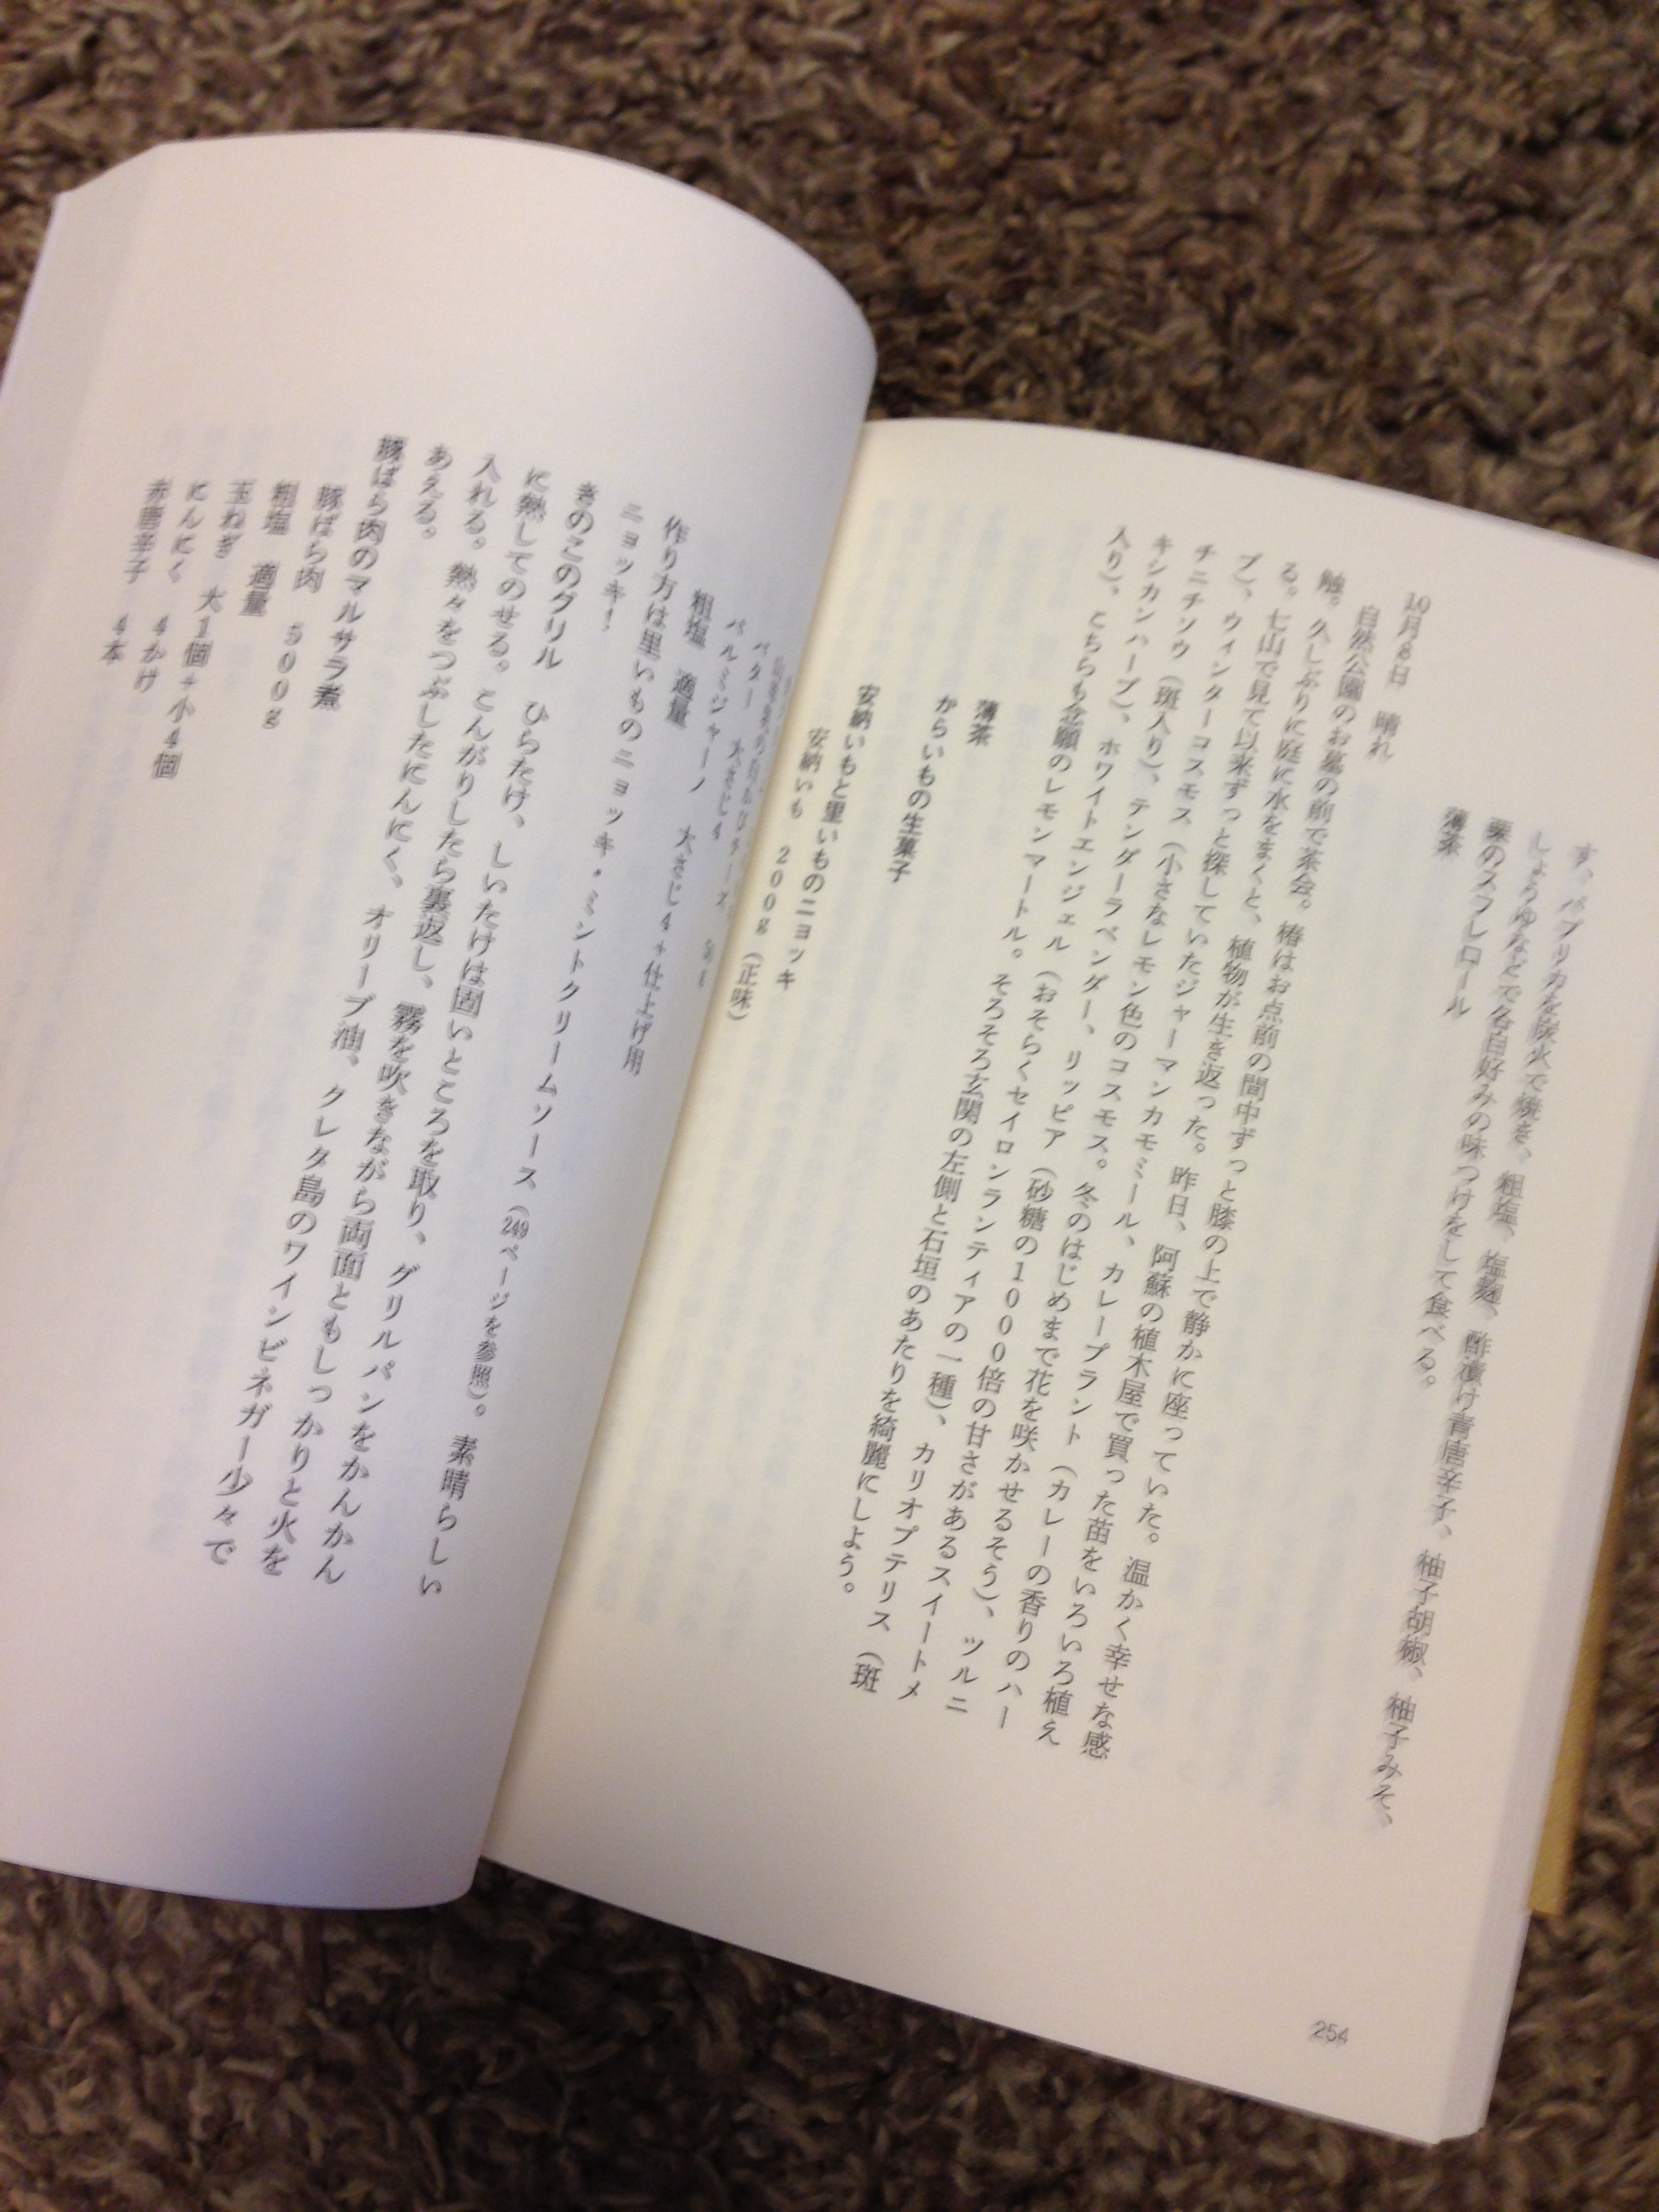 す。パプリカを炭火で焼き、粗塩、塩麹、酢漬け青唐辛子、柚子胡椒、柚子みそ、
しょうゆなどで各自好みの味つけをして食べる。
栗のスフレロール
薄茶
10月8日　晴れ
自然公園のお墓の前で茶会。椿はお点前の間中ずっと膝の上で静かに座っていた。温かく幸せな感
触。久しぶりに庭に水をまくと、植物が生き返った。昨日、阿蘇の植木屋で買った苗をいろいろ植え
る。七山で見て以来ずっと探していたジャーマンカモミール、カレープラント（カレーの香りのハー
ブ）、ウィンターコスモス（小さなレモン色のコスモス。冬のはじめまで花を咲かせるそう）、ツルニ
チニチソウ（斑入り）、テンダーラベンダー、リッピア（砂糖の1000倍の甘さがあるスイートメ
キシカンハーブ）、ホワイトエンジェル（おそらくセイロンランティアの一種）、カリオプテリス（斑
入り）、こちらも念願のレモンマートル。そろそろ玄関の左側と石垣のあたりを綺麗にしよう。
薄茶
からいもの生菓子
安納いもと里いものニョッキ
安納いも　200g（正味）
バター　大さじ4
パルミジャーノ　大さじ4+仕上げ用
粗塩　適量
作り方は里いものニョッキ・ミントクリームソース（249ページを参照）。素晴らしい
ニョッキ！
きのこのグリル　ひらたけ、しいたけは固いところを取り、グリルパンをかんかん
に熱してのせる。こんがりしたら裏返し、霧を吹きながら両面ともしっかりと火を
入れる。熱々をつぶしたにんにく、オリーブ油、クレタ島のワインビネガー少々で
あえる。
豚ばら肉のマルサラ煮
豚ばら肉　500g
粗塩　適量
玉ねぎ　大1個+小4個
にんにく　4かけ
赤唐辛子　4本
254